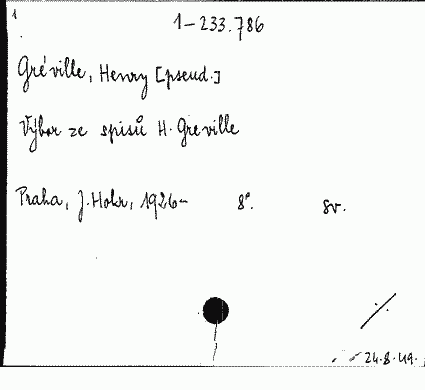 1
1-233.786
Gréville, Henry [pseud.]
Výbor ze spisů H. Greville
Praha, J. Hokr, 1926-
8°. 8v.
24.8.49.